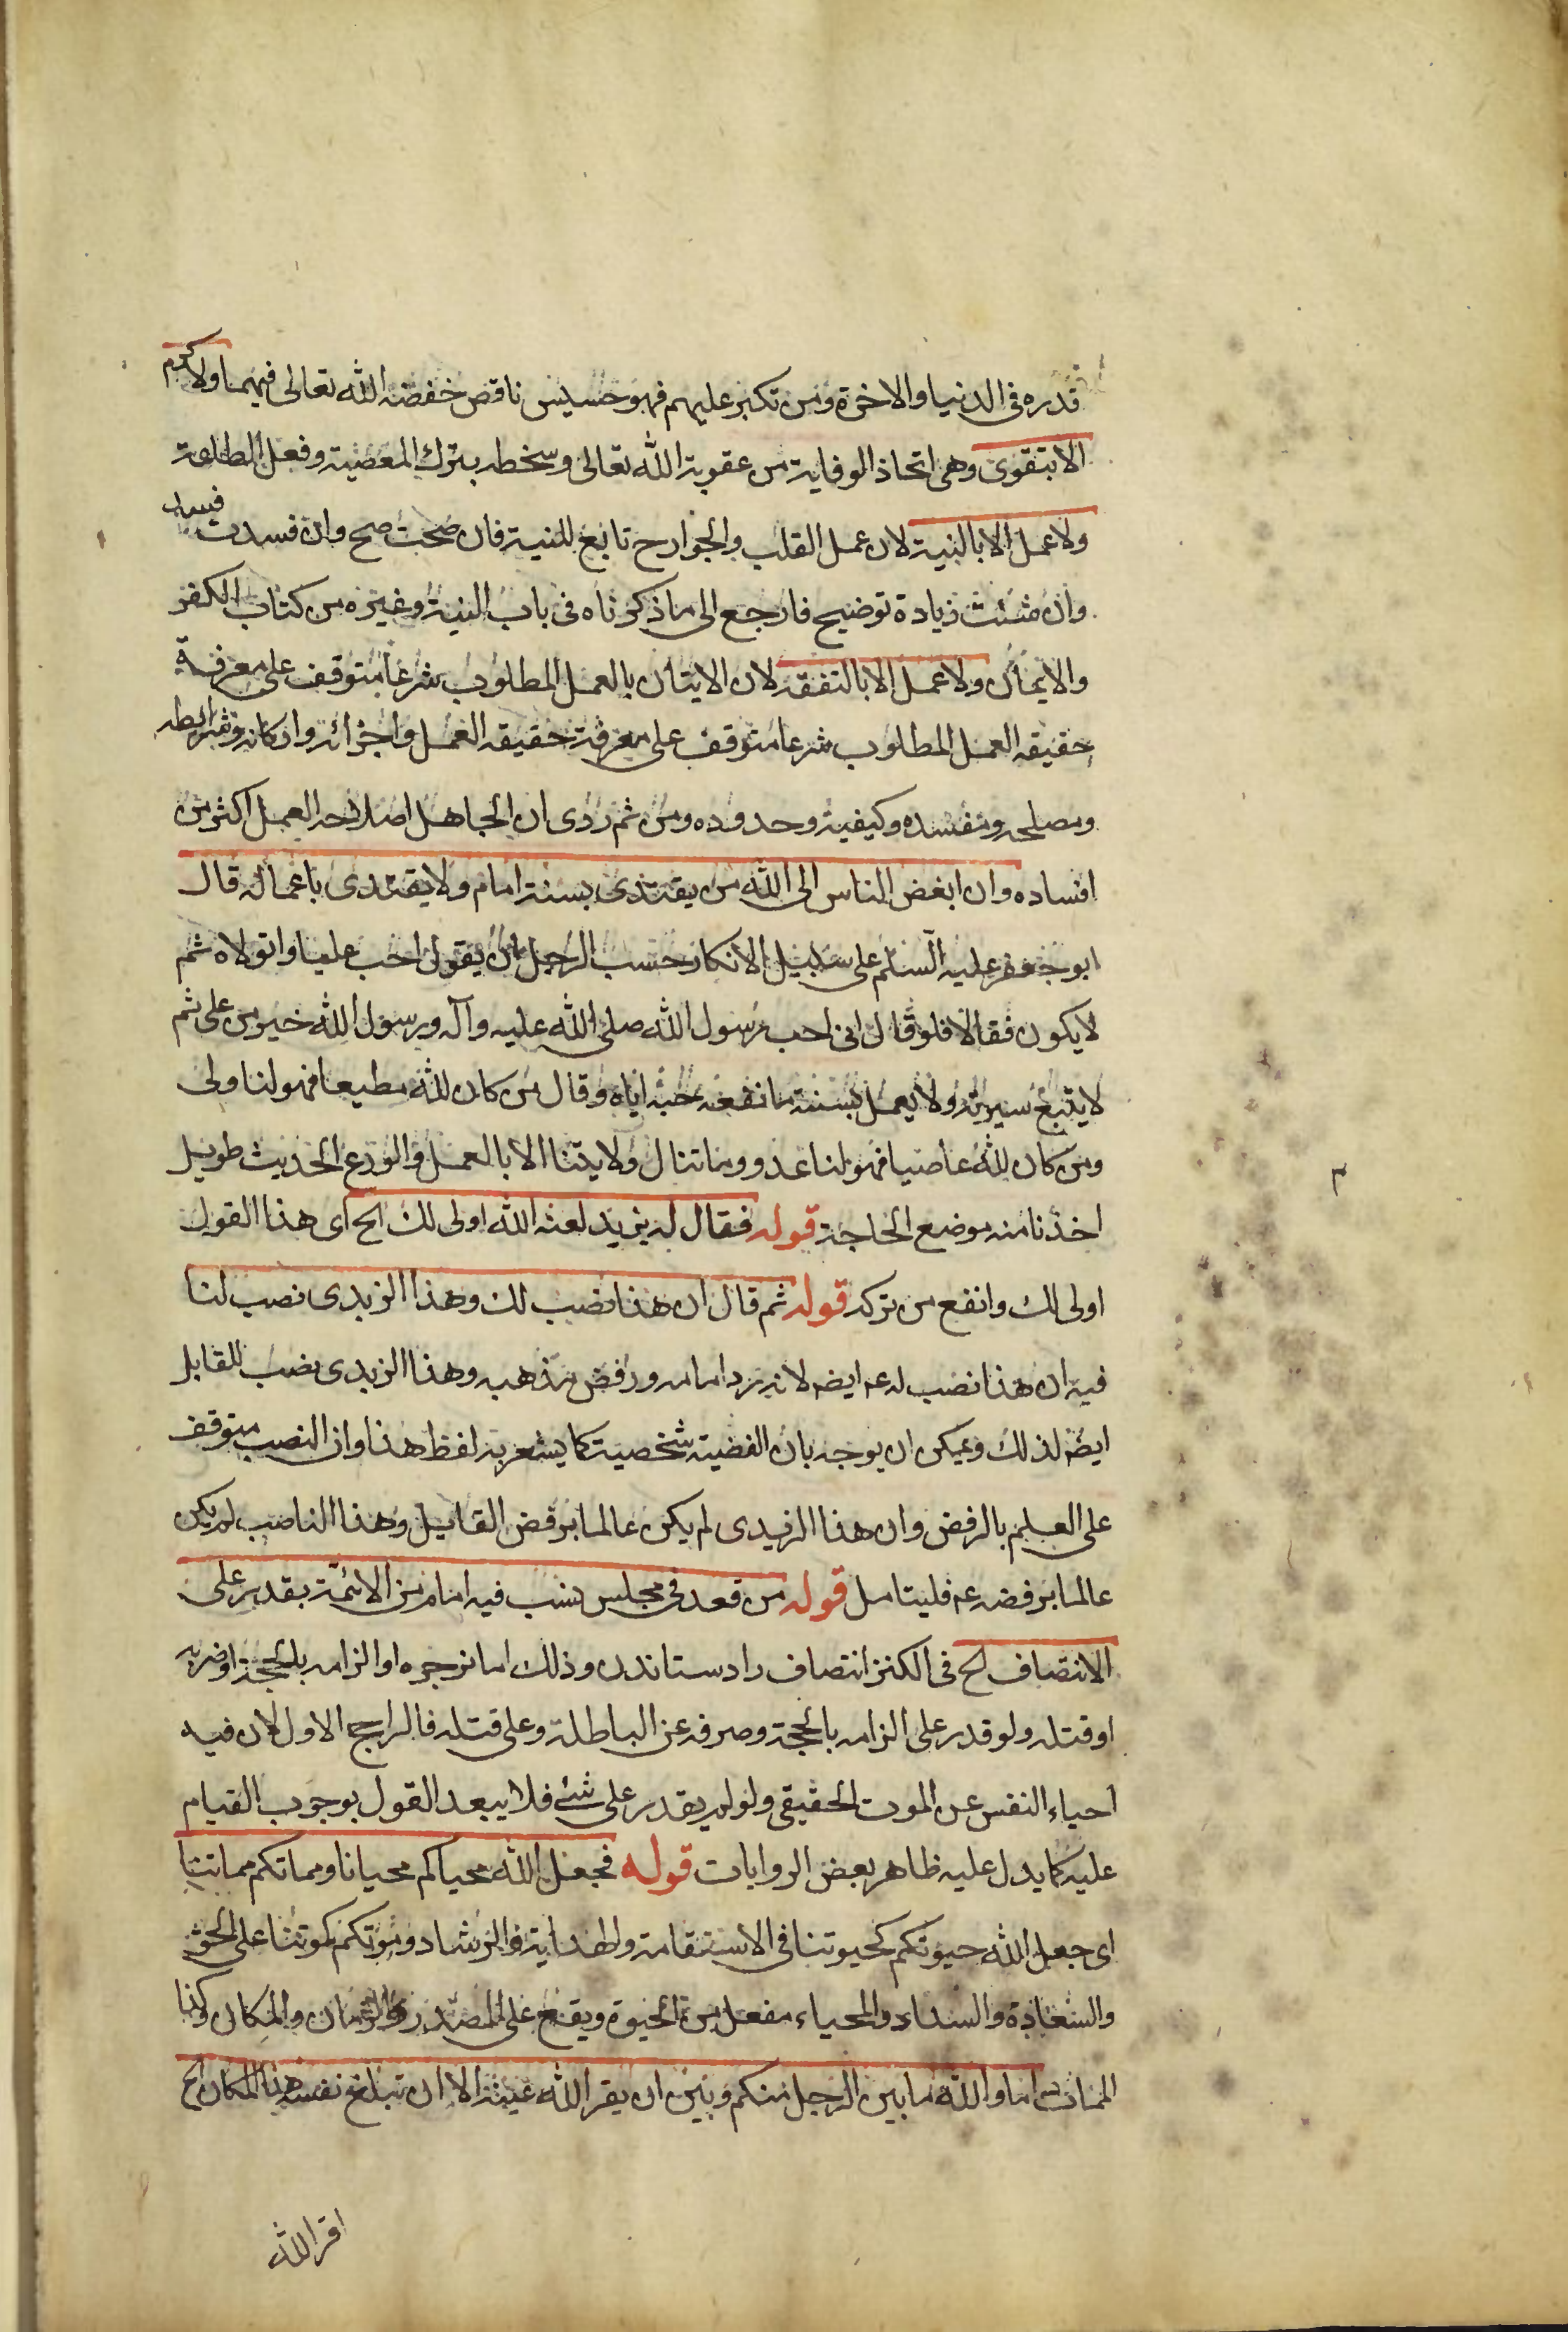 قدره فى الدنيا والاخرة ومن تكبر عليهم فهو خسيس ناقص خفضه الله تعالى فيهما ولاكرم
الا بتقوى وهى اتخاذ الوقاية من عقوبة الله تعالى وسخطه بترك المعصية وفعل الطاعة
ولا عمل الا بالنية لان عمل القلب والجوارح تابع للنية فان صحت صح وان فسدت فسد
وان شئت زيادة توضيح فارجع الى ما ذكرناه فى باب النية وغيره من كتاب الكفر
والايمان ولا عمل الا بالتفقه لان الايتان بالعمل المطلوب شرعا متوقف على معرفة
حقيقه العمل المطلوب شرعا متوقف على معرفة حقيقه العمل واجزائه واركانه وشرايطه
ومصلحه ومفسده وكيفية وحدوده ومن ثم روى ان الجاهل اصلاحه العمل اكثر من
افساده وان ابغض الناس الى الله من يقتدى بسنة امام ولا يقتدى باعماله قال
ابو جعفر عليه السلم على سبيل الانكار حسب الرجل ان يقول احب عليا واتولاه ثم
لا يكون فعالا فلو قال انى احب رسول الله صلى الله عليه وآله ورسول الله خير من على ثم
لا يتبع سيرته ولا يعمل بسنته ما نفعه حبه اياه وقال من كان لله مطيعا فهو لنا ولى
ومن كان لله عاصيا فهو لنا عدو وما تنال ولايتنا الا بالعمل والورع الحديث طويل
اخذنا منه موضع الحاجة قوله فقال له يزيد لعنه الله اولى لك الخ اى هذا القول
اولى لك وانفع من تركه قوله ثم قال ان هذا نصب لك وهذا الزيدى نصب لنا
فيه ان هذا نصب له عم ايضه لانه يرد امامه ورفض مذهبه وهذا الزيدى نصب للقايل
ايضه لذلك ويمكن ان يوجه بان القضية شخصية كما يشعر به لفظ هذا وان النصب متوقف
على العلم بالرفض وان هذا الزيدى لم يكن عالما برفض القايل وهذا الناصب لم يكن
عالما برفضه عم فليتامل قوله من قعد فى مجلس يسب فيه امام من الائمة يقدر على
الانتصاف الخ فى الكنز انتصاف داد ستاندن وذلك اما بزجره او الزامه بالحجة او ضربه
او قتله ولو قدر على الزامه بالحجة وصرفه عن الباطلة وعلى قتله فالراجح الاول لان فيه
احياء النفس عن الموت الحقيقى ولو لم يقدر على شئ فلا يبعد القول بوجوب القيام
عليه كما يدل عليه ظاهر بعض الروايات قوله فجعل الله محياكم محيانا ومماتكم مماتنا
اى جعل الله حيوتكم كحيوتنا فى الاستقامة والهداية والرشاد وموتكم كموتنا على الحق
والسعادة والسداد والمحياء مفعل من الحيوة ويقع على المصدر والزمان والمكان وكذا
الممات اما والله ما بين الرجل منكم وبين ان يقر الله عينه الا ان تبلغ نفسه هذا المكان الخ
اقر الله